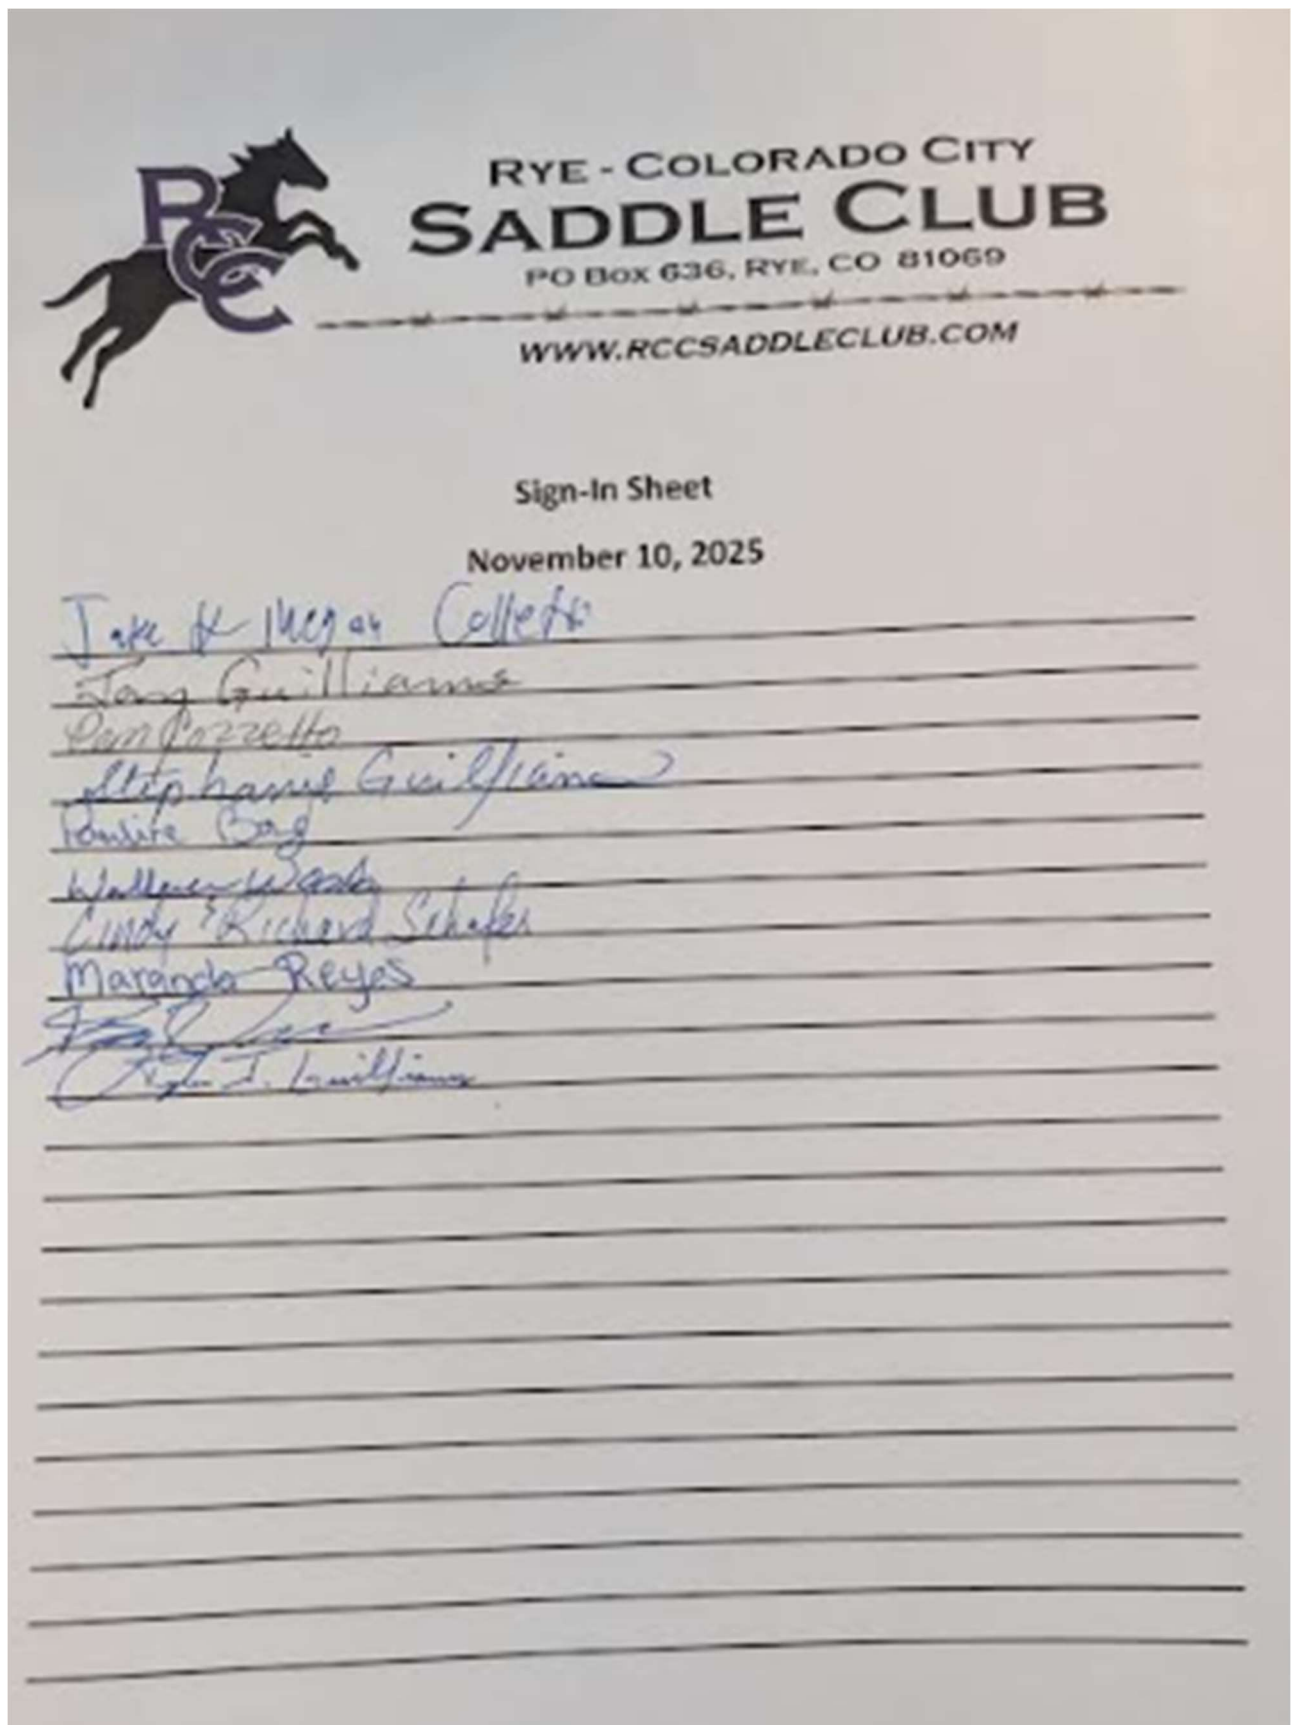 RCC
RYE - COLORADO CITY
SADDLE CLUB
PO BOX 636, RYE, CO 81069
WWW.RCCSADDLECLUB.COM
Sign-In Sheet
November 10, 2025
Jake & Megan Colletti
Guilliams
Pam Pozzetto
Stephanie Guilliams
Cindy & Richard Schafer
Maranda Reyes
J. Guilliams